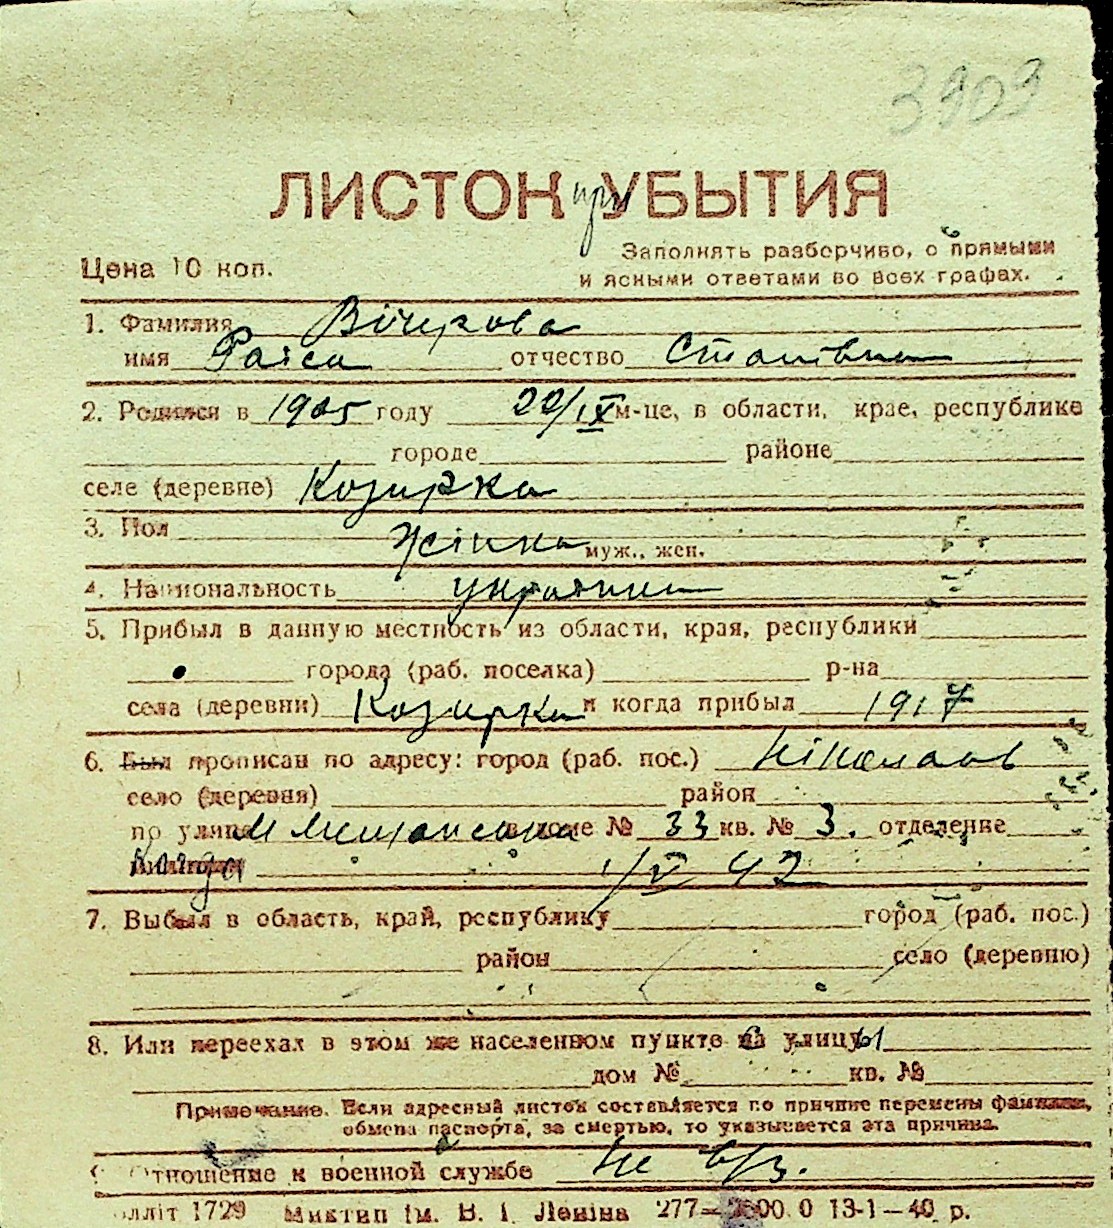 3909
ЛИСТОК при УБЫТИЯ
Цена 10 коп.
Заполнять разборчиво, с прямыми
и ясными ответами во всех графах.
1. Фамилия Вічерова
имя Раїса отчество
2. Родился в 1905 году 20/IX м-це, в области, крае, республике
городе районе
селе (деревне) Козирка
3. Пол Жінка муж., жен.
4. Национальность українка
5. Прибыл в данную местность из области, края, республики
города (раб. поселка) р-на
села (деревни) Козирка и когда прибыл 1917
6. Был прописан по адресу: город (раб. пос.) Ніколаів
село (деревня) район
по улице М Мещанська в доме № 33 кв. № 3. отделение
1/V 42
7. Выбыл в область, край, республику город (раб. пос.)
район село (деревню)
8. Или переехал в этом же населенном пункте на улицу
дом № кв. №
Примечание. Если адресный листок составляется по причине перемены фамилии,
обмена паспорта, за смертью, то указывается эта причина.
Отношение к военной службе Не в/з.
олліт 1729 Миктип ім. В. І. Леніна 277—2000.0 13-1—40 р.